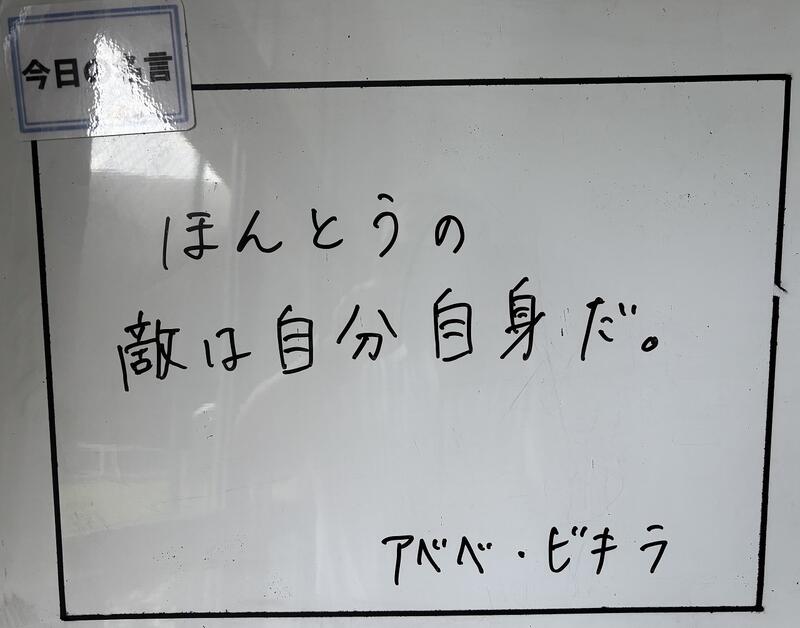 今日の名言
ほんとうの
敵は自分自身だ。
アベベ・ビキラ